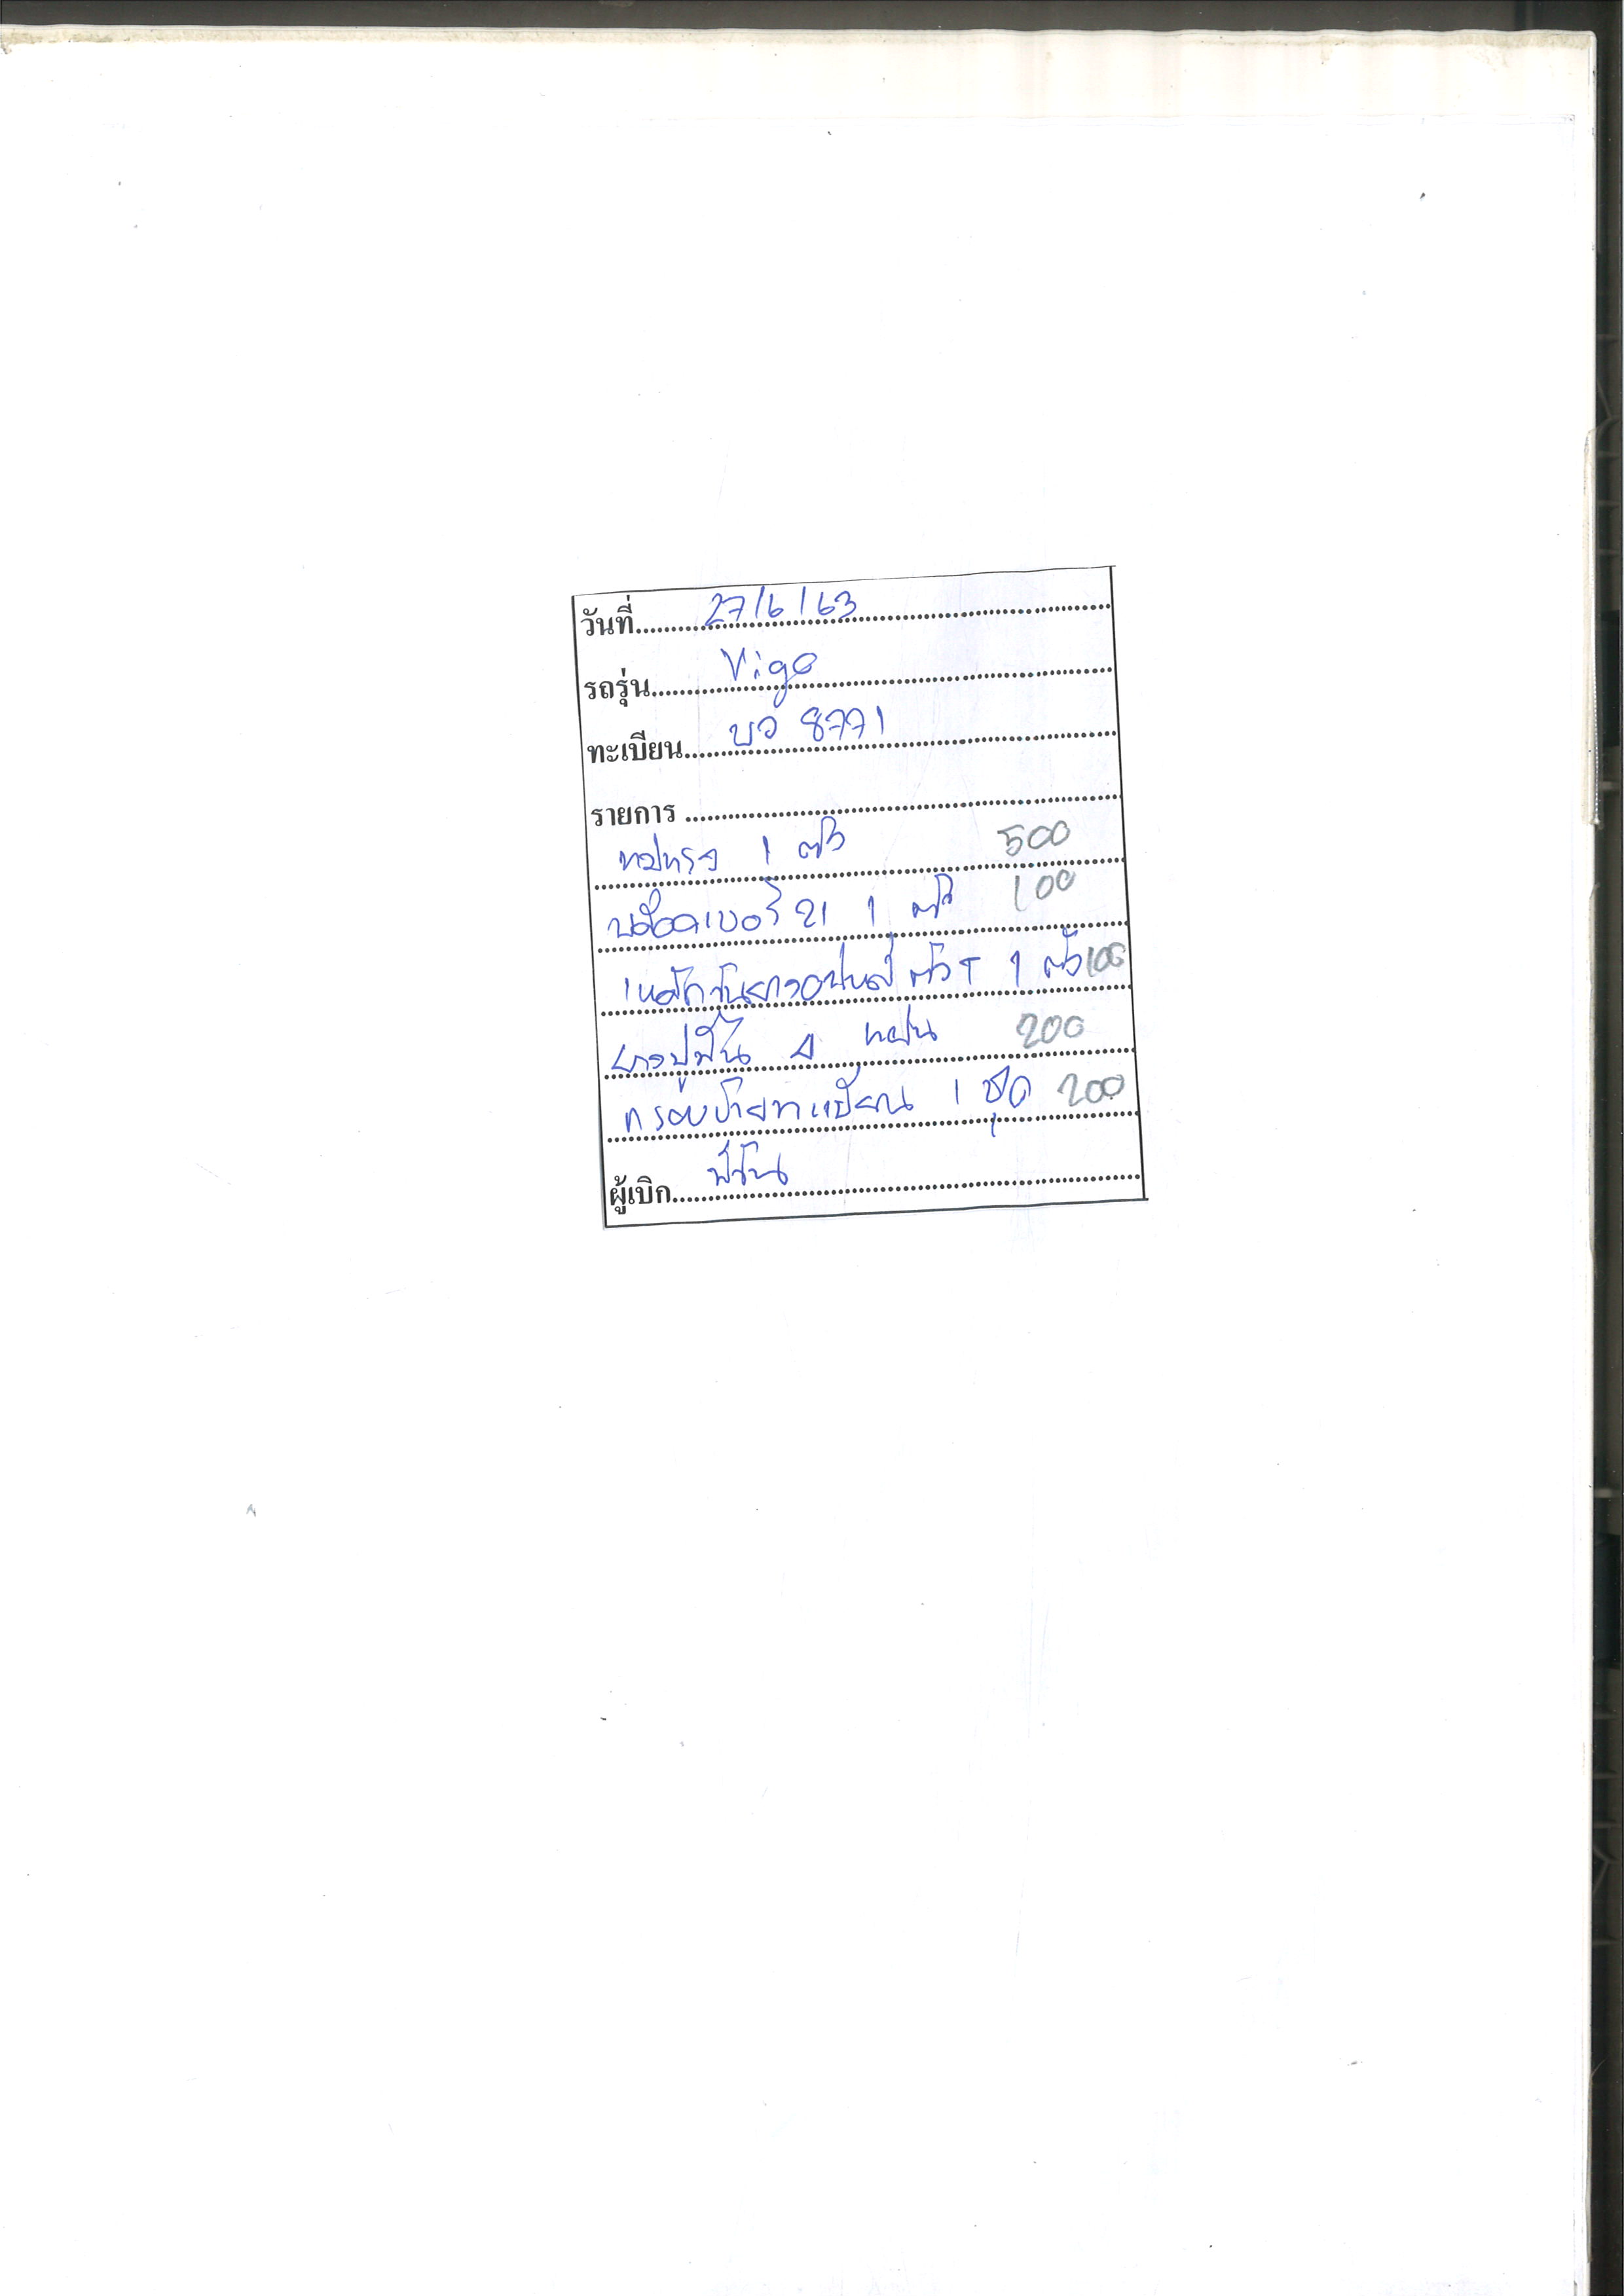 วันที่ 27/6/63
รถรุ่น Vigo
ทะเบียน บว 8771
รายการ
1 ตัว 500
บล็อคเบอร์ 21 1 ตัว 100
เหล็กขันยางอะไหล่ ตัว T 1 ตัว 100
ยางปูพื้น 4 แผ่น 200
กรอบป้ายทะเบียน 1 ชุด 200
ผู้เบิก